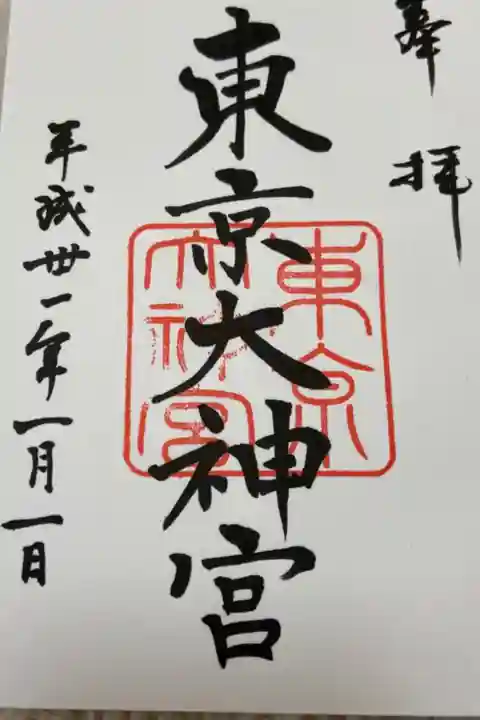 奉拝
東京大神宮
東京大神宮
平成卅一年一月一日